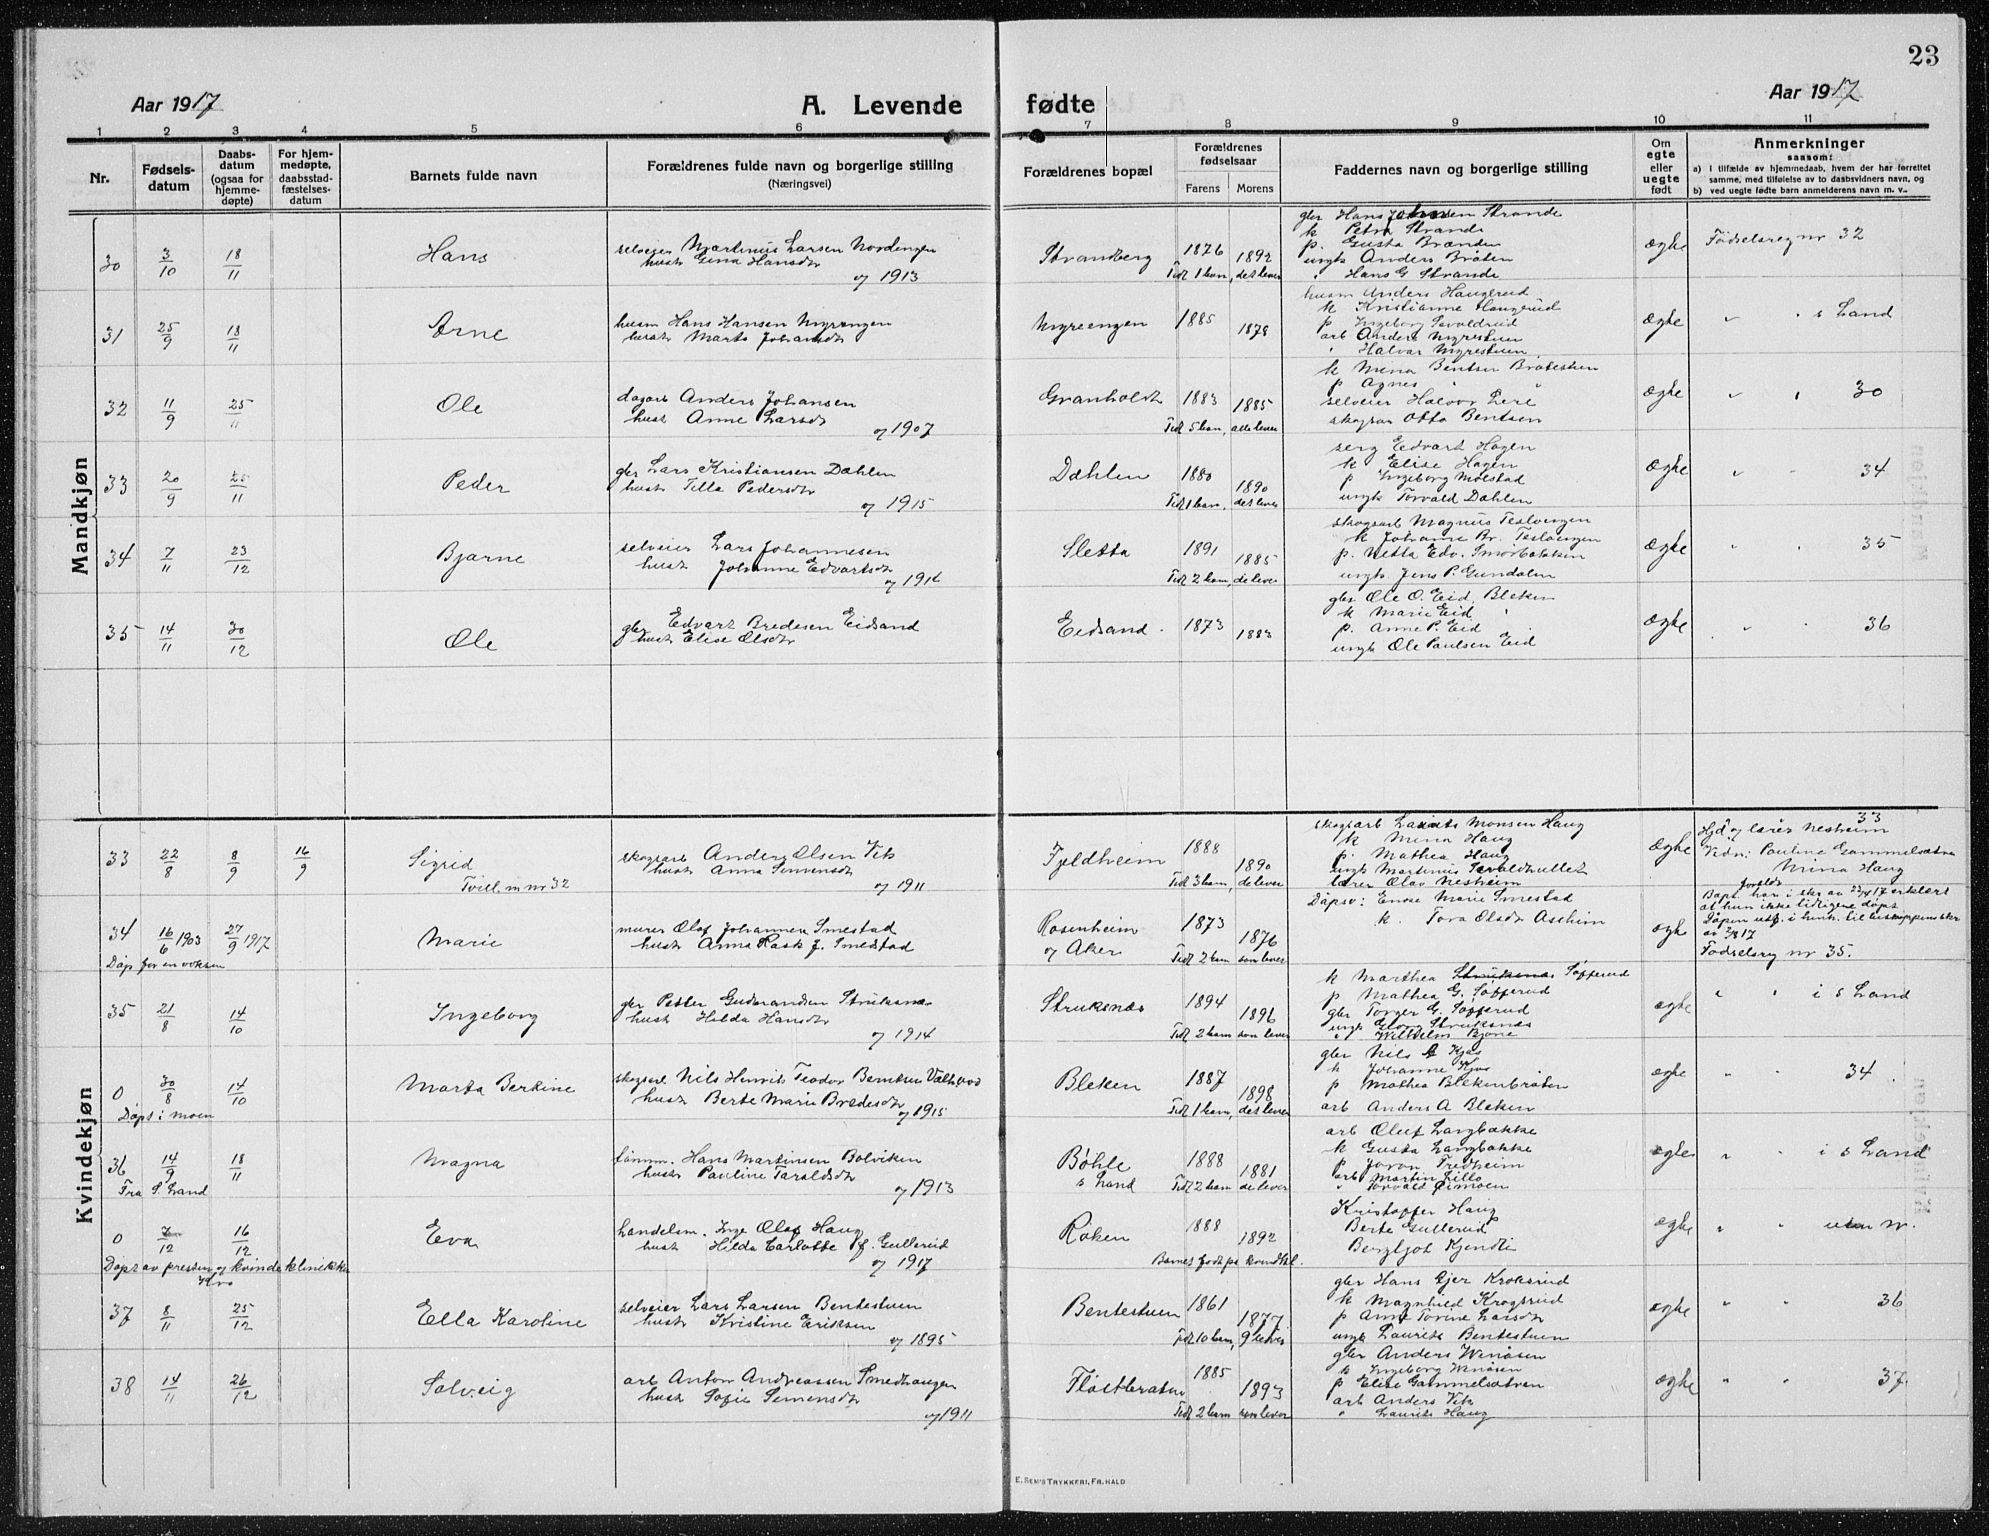 23
Aar 1917
A. Levende fødte
Aar 1917
1 2 3 4 5 6 7 8 9 10 11
Nr.
Fødsels-
datum
Daabs-
datum
(ogsaa for
hjemme-
døpte)
For hjem-
medøpte,
daabsstad-
fæstelses-
datum
Barnets fulde navn
Forældrenes fulde navn og borgerlige stilling
(Næringsvei)
Forældrenes bopæl
Forældrenes
fødselsaar
Farens Morens
Faddernes navn og borgerlige stilling
Om
egte
eller
uegte
født
Anmerkninger
saasom:
a) i tilfælde av hjemmedaab, hvem der har forrettet
samme, med tilføielse av to daabsvidners navn, og
b) ved uegte fødte barn anmelderens navn m. v.
Mandkjøn
30 3/10 18/11 Hans
selveier Martinus Larsen Nordengen
hust Gina Hansdtr
og 1913
Strandberg 1876 1892
Tidl 1 barn, det lever
gbr Hans Johansen Strande
k Petra Strande
p. Gusta Brænden
ungk Anders Bråten
" Hans G Strande
ægte Fødselsreg nr 32
31 25/9 18/11 Arne
husm Hans Hansen Myrengen
hust Marte Johansdtr
Myreengen 1885 1878
husm Anders Haugerud
k Kristianne Haugerud
p Ingeborg Sevaldrud
arb Anders Myrestuen
" Halvor Myrestuen
ægte " " s Land
32 11/9 25/11 Ole
dagarb Anders Johansen
hust Anne Larsdtr
og 1907
Granholdt 1883 1885
Tidl 5 barn, alle lever
k Mina Bentsen Bråtestuen
p Agnes " "
selveier Halvor Lere
skogsar Otto Bentsen
ægte " " 30
33 20/9 25/11 Peder
gbr Lars Kristiansen Dæhlen
hust Tilla Pedersdtr
og 1915
Dæhlen 1880 1890
Tidl 1 barn, det lever
serg Edvart Hagen
k Elise Hagen
p Ingeborg Molstad
ungk Torvald Dæhlen
ægte " " 34
34 7/11 23/12 Bjarne
selveier Lars Johannesen
hust Johanne Edvartsdtr
og 1914
Sletta 1891 1885
Tidl 2 barn, de lever
skogsarb Magnus Tesloengen
k Johanne Br. Tesloengen
p. Netta Edv. Smørbakken
ungk. Jens P. Gundalen
ægte " " 35
35 14/11 30/12 Ole
gbr Edvart Bredesen Eidsand
hust Elise Olsdtr
Eidsand. 1873 1883
gbr Ole O. Eid, Bleken
k Marie Eid "
p. Anne P. Eid "
ungk Ole Paulsen Eid
ægte " " 36
Kvindekjøn
33 22/8 8/9 16/9 Sigrid
Tvill m nr 32
skogsarb Anders Olsen Vik
hust Anna Simensdtr
og 1911
Fjeldheim 1888 1890
Tidl 3 barn, de lever
skogsarb Laurits Monsen Haug
k Mina Haug
p. Mathea Haug
ungk Martinus Sevaldhullet
lærer Olav Nesheim
ægte 33
Hjd av lærer Nesheim
Vidn: Pauline Gammelsætra
Mina Haug
34 16/6 1903 27/9 1917 Marie
Døp for en voksen
murer Olaf Johannesen Smestad
hust Anna Rask f. Smedstad
Rosenheim
og Aker 1873 1876
Tidl 2 barn som lever
Døpsv: Enke Marie Smestad
k. Tora Olsdtr Aschim
ægte
foreldr
at hun ikke tidligere døpt
Døpen utf. i henh. til biskoppens skr
av 7/8 17
Fødselsreg nr 35.
35 21/8 14/10 Ingeborg
gbr Petter Gudbrandsen Struksnæs
hust Hilda Hansdtr
og 1914
Struksnæs 1894 1896
Tidl 2 barn som lever
k Marthea Struksnæs Søfferud
p Mathea G. Søfferud
gbr Torger G. Søfferud
ungk Georg Struksnæs
" Wilhelm Bjone
ægte " " i s Land
0 30/8 14/10 Marta Berkine
Døpt i moen
skogsarb Nils Henrik Teodor Berntsen Valhovd
hust Berte Marie Bredesdtr
og 1915
Bleken 1887 1898
Tidl 1 barn, det lever
gbr Nils Kjøs
k Johanne Kjøs
p Mathea Blekenbråten
arb Anders A Bleken
ægte " " 34
36 14/9 18/11 Magna
Fra S. Land
tømm. Hans Martinsen Bolviken
hust Pauline Taraldsdtr
og 1913
Bøhle
s Land 1888 1881
Tidl 2 barn de lever
arb Oluf Langbakke
k Gusta Langbakke
p Joron Fredheim
arb Martin Lillo
" Torvald
ægte " " i s Land
0 7/12 16/12 Eva
Døpt av presten og kvindeklinikken
Kra
handelsm. Inge Olaf Haug
hust Hilda Carlotte f. Gullerud
og 1917
Røken 1888 1892
Barnet født på kvindekl.
Kristoffer Haug
Berte Gullerud
Bergljot Kjendli
ægte " " uten nr.
37 8/11 25/12 Ella Karoline
selveier Lars Larsen Bentestuen
hust Kristine Eriksen
og 1895
Bentestuen 1861 1877
Tidl 10 barn, 9 lever
gbr Hans Gjer Kroksrud
k Magnhild Krogsrud
p Anne Torine Larsdtr
ungk Laurits Bentestuen
ægte " " 36
38 14/11 26/12 Solveig
arb Anton Andreassen Smedhaugen
hust Sofie Simensdtr
og 1911
Fløitbråten 1885 1893
Tidl 2 barn som lever
gbr Anders Wenåsen
k Ingeborg Wenåsen
p Elise Gammelsætren
arb Anders Vik
" Laurits Haug
ægte " " 37.
E. SEM'S TRYKKERI, FR.HALD